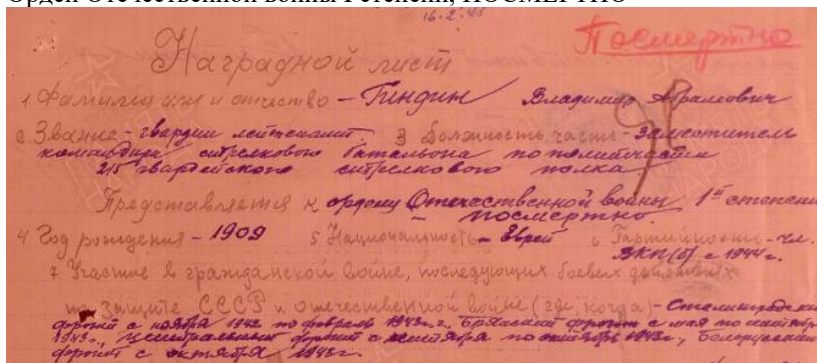 Орден Отечественной войны I степени, ПОСМЕРТНО
16.2.45
Посмертно
Наградной лист
1. Фамилия имя и отчество – Гиндин Владимир Абрамович
2. Звание – гвардии лейтенант. 3 Должность, часть – заместитель
командира стрелкового батальона по политчасти
215 гвардейского стрелкового полка
Представляется к ордену Отечественной войны 1й степени
– посмертно.
4. Год рождения – 1909 5 Национальность – еврей 6 Партийность – чл.
ВКП(б) с 1944 г.
7 Участие в гражданской войне, последующих боевых действиях
по защите СССР и отечественной войне (где, когда) – Сталинградский
фронт с ноября 1942 по февраль 1943 г., Брянский фронт с мая по сентябрь
1943 г., Центральный фронт с сентября по октябрь 1943 г., Белорусский
фронт с октября 1943 г.